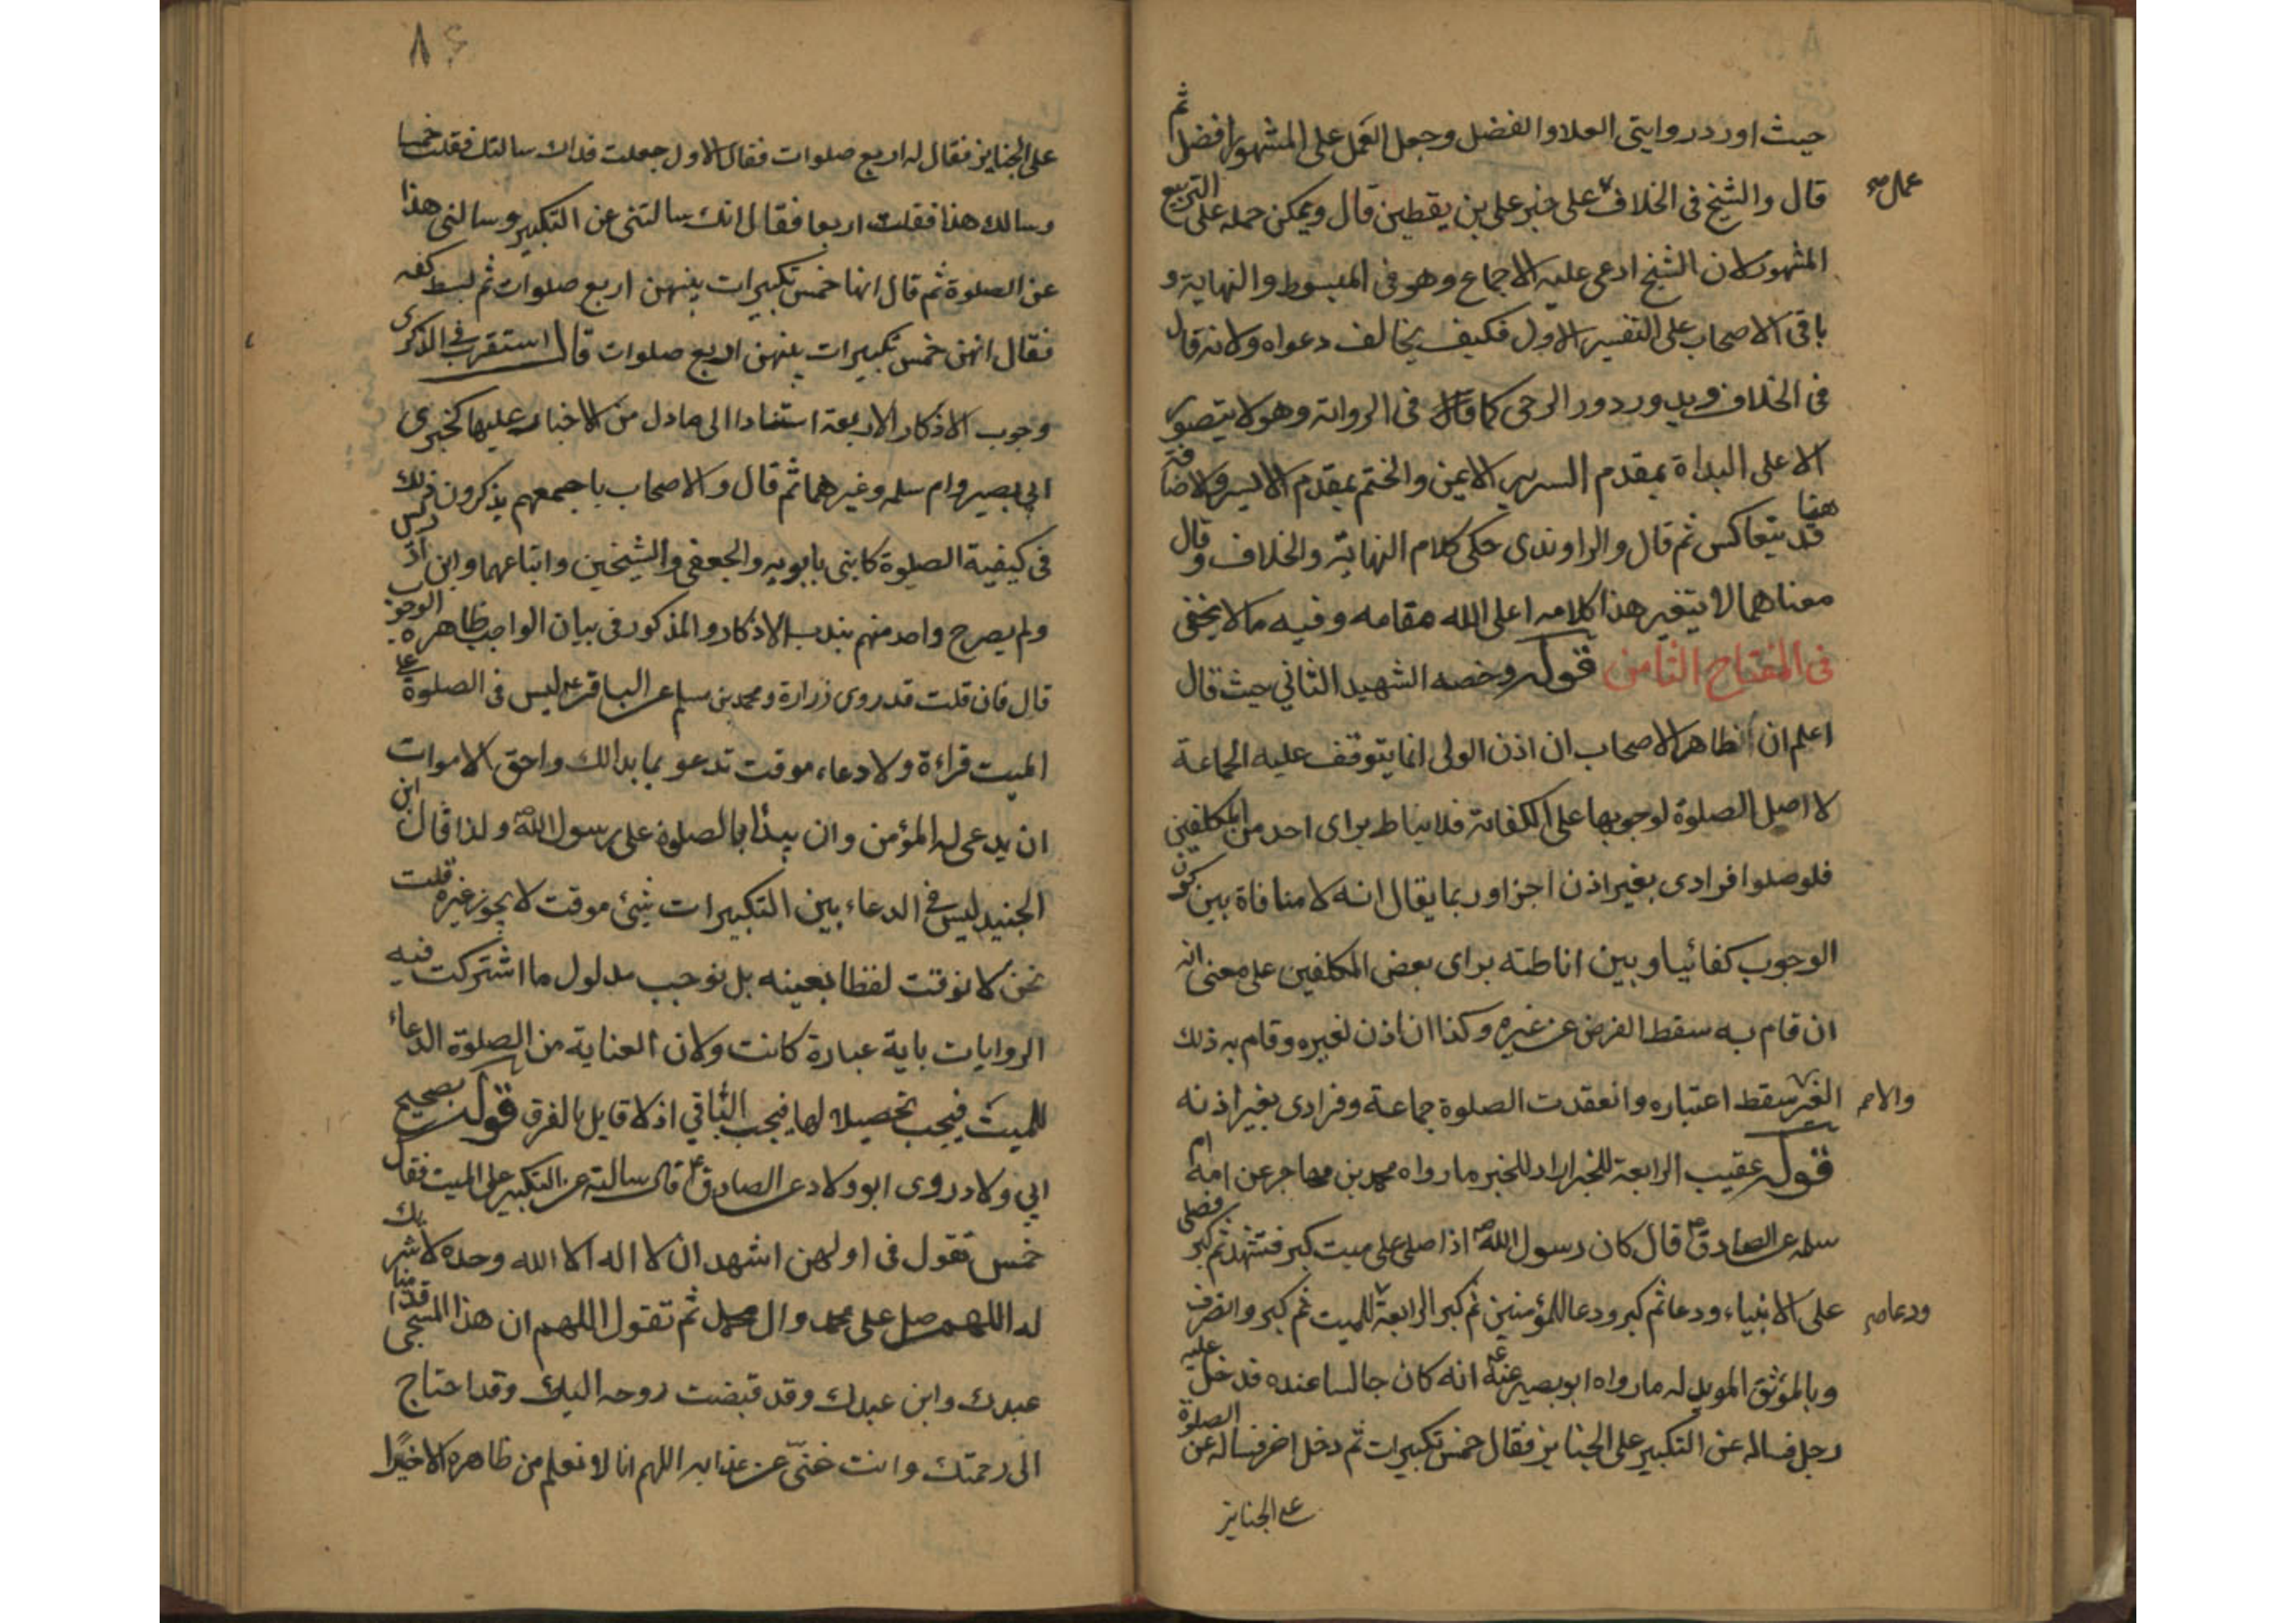 حيث اورد روايتى العلا والفضل وجعل العمل على المشهور افضل ثم
قال والشيخ فى الخلاف على خبر على بن يقطين قال ويمكن حمله على التربيع
عمل صح
المشهور لان الشيخ ادعى عليه الاجماع وهو فى المبسوط والنهاية و
باقى الاصحاب على التفسير الاول فكيف يخالف دعواه ولانه قال
فى الخلاف ويدور دور الرحى كما قال فى الرواية وهو لا يتصور
الا على البداة بمقدم السرير الايمن والختم بمقدم الايسر والاضافة
هنا قد يتعاكس ثم قال والراوندى حكى كلام النهاية والخلاف وقال
معناهما لا يتغير هذا كلامه اعلى الله مقامه وفيه ما لا يخفى
فى المفتاح الثامن قوله وخصه الشهيد الثاني حيث قال
اعلم ان ظاهر الاصحاب ان اذن الولى انما يتوقف عليه الجماعة
لا اصل الصلوة لوجوبها على الكفاية فلا يناط براى احد من المكلفين
فلو صلوا فرادى بغير اذن اجزا وربما يقال انه لا منافاة بين كون
الوجوب كفائيا وبين اناطته براى بعض المكلفين على معنى انه
ان قام به سقط الفرض عن غيره وكذا ان اذن لغيره وقام به ذلك
الغير سقط اعتباره وانعقدت الصلوة جماعة وفرادى بغير اذنه
والا
قوله عقيب الرابعة للخبر اراد للخبر ما رواه محمد بن مهاجر عن امه ام
سلمه عن الصادق ع قال كان رسول الله ص اذا صلى على ميت كبر فتشهد ثم كبر فصلى
على الانبياء ودعا ثم كبر ودعا للمؤمنين ثم كبر الرابعة للميت ثم كبر وانصرف
ودعا صح
وبالموثق المويد له ما رواه ابو بصير عنه ع انه كان جالسا عنده فدخل عليه
رجل فساله عن التكبير على الجنايز فقال خمس تكبيرات ثم دخل اخر فساله عن الصلوة
على الجنايز
على الجنايز فقال له اربع صلوات فقال الاول جعلت فداك سالتك فقلت خمسا
وسالك هذا فقلت اربعا فقال انك سالتنى عن التكبير وسالنى هذا
عن الصلوة ثم قال انها خمس تكبيرات بينهن اربع صلوات ثم بسط كفه
فقال انهن خمس تكبيرات بينهن اربع صلوات قال استقرب فى الذكرى
وجوب الاذكار الاربعة استنادا الى ما دل من الاخبار عليها كخبرى
ابى بصير وام سلمه وغيرهما ثم قال والاصحاب باجمعهم يذكرون ذلك
فى كيفية الصلوة كابنى بابويه والجعفى والشيخين واتباعهما وابن ادريس
ولم يصرح واحد منهم بندب الاذكار والمذكور فى بيان الواجب ظاهره الوجوب
قال فان قلت قد روى زرارة ومحمد بن مسلم عن الباقر ع ليس فى الصلوة على
الميت قراءة ولا دعاء موقت تدعو بما بدالك واحق الاموات
ان يدعى له المؤمن وان يبدأ بالصلوة على رسول الله ص ولذا قال ابن
الجنيد ليس فى الدعاء بين التكبيرات شىء موقت لا يجوز غيره قلت
نحن لا نوقت لفظا بعينه بل نوجب مدلول ما اشتركت فيه
الروايات باية عبارة كانت ولان العناية من الصلوة الدعاء
للميت فيجب تحصيلا لها فيجب الباقي اذ لا قايل بالفرق قوله بصحيح
ابي ولاد روى ابو ولاد عن الصادق ع قال سالته عن التكبير على الميت فقال
خمس تقول فى اولهن اشهد ان لا اله الا الله وحده لا شريك
له اللهم صل على محمد وال محمد ثم تقول اللهم ان هذا المسجى قدامنا
عبدك وابن عبدك وقد قبضت روحه اليك وقد احتاج
الى رحمتك وانت غنى عن عذابه اللهم انا لا نعلم من ظاهره الا خيرا